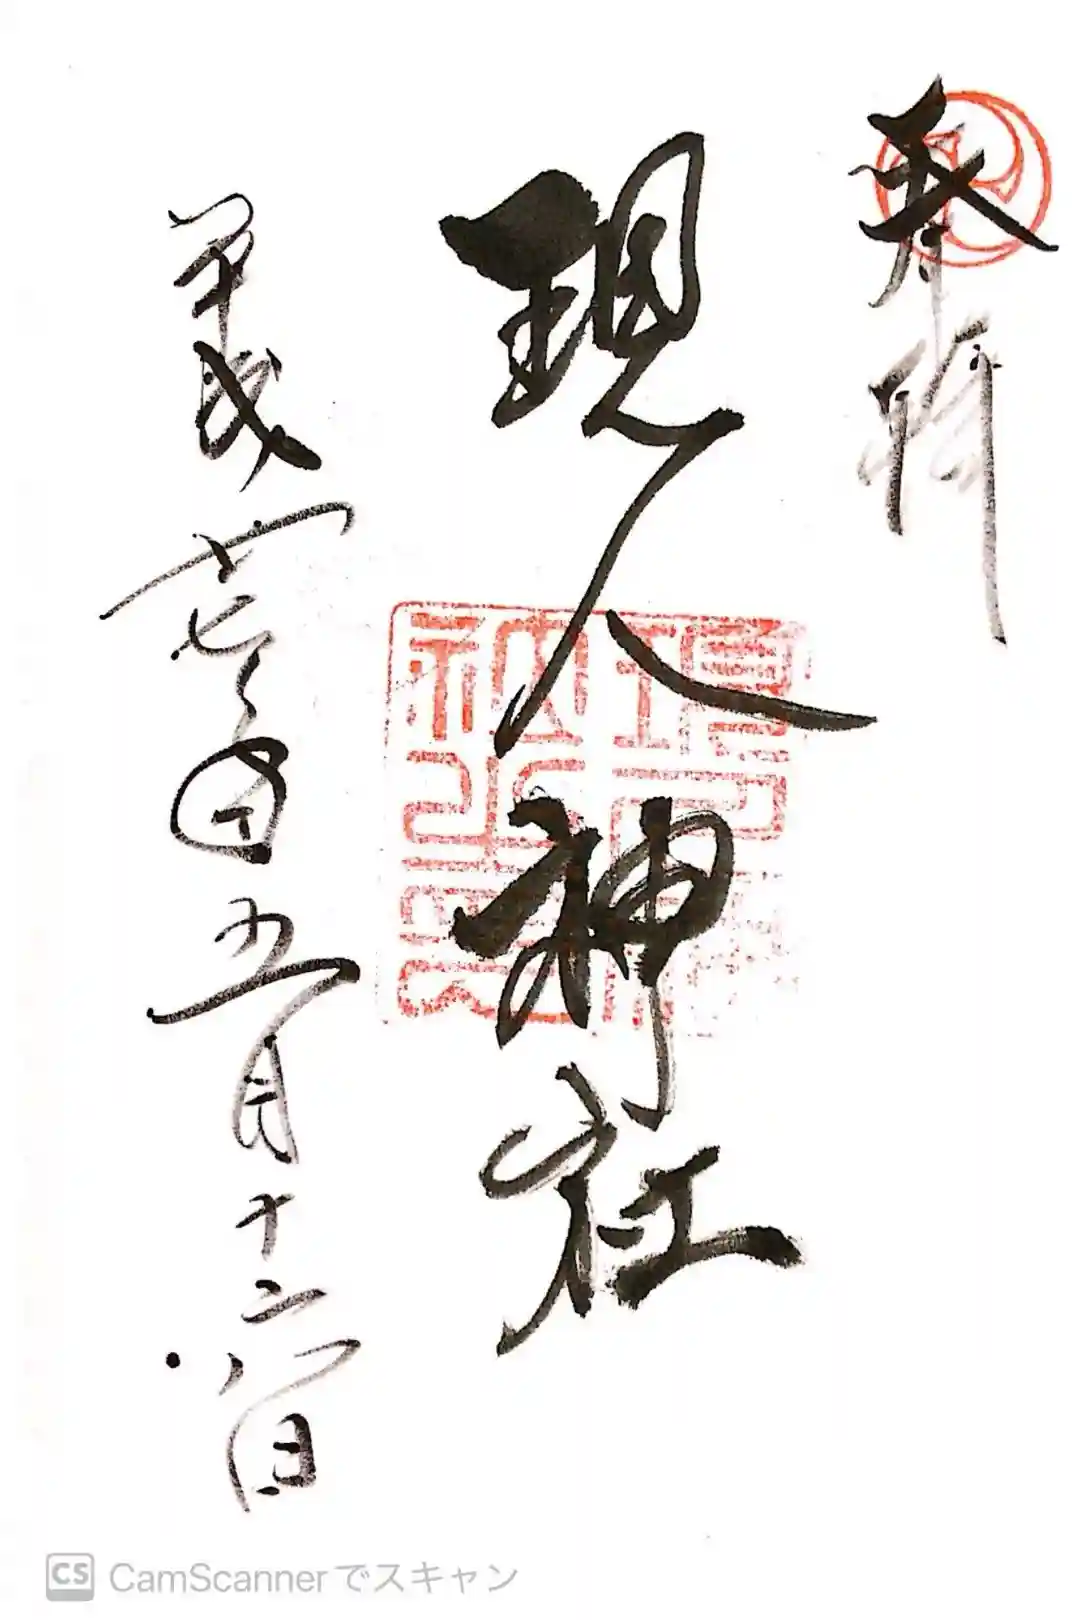 奉拝
現人神社
平成廿七年五月十六日
CamScannerでスキャン